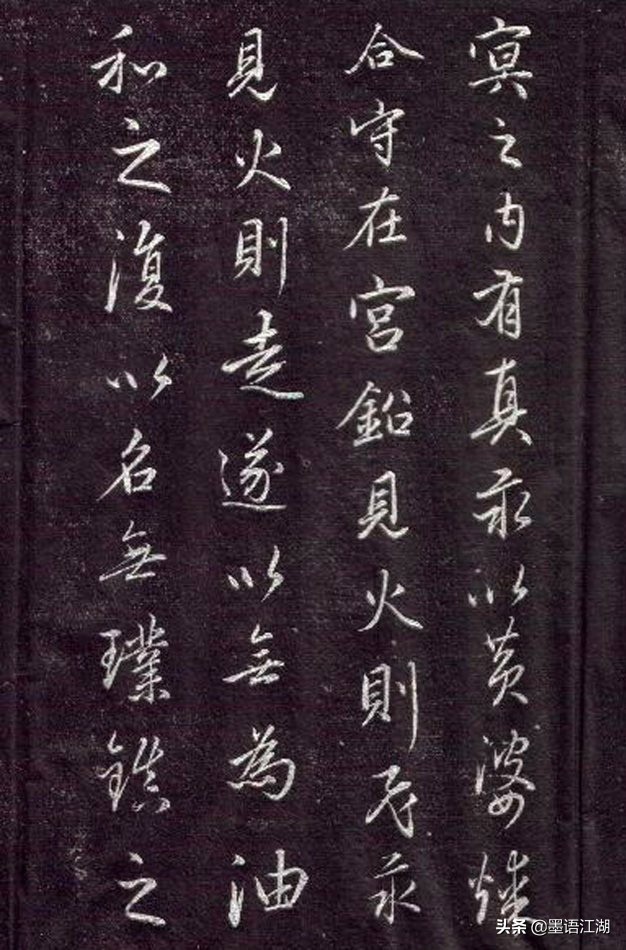 冥之内有真汞以黄婆
合守在宮鉛見火則飛汞
見火則走遂以無為油
和之復以名無璞鎮之
头条 @墨语江湖